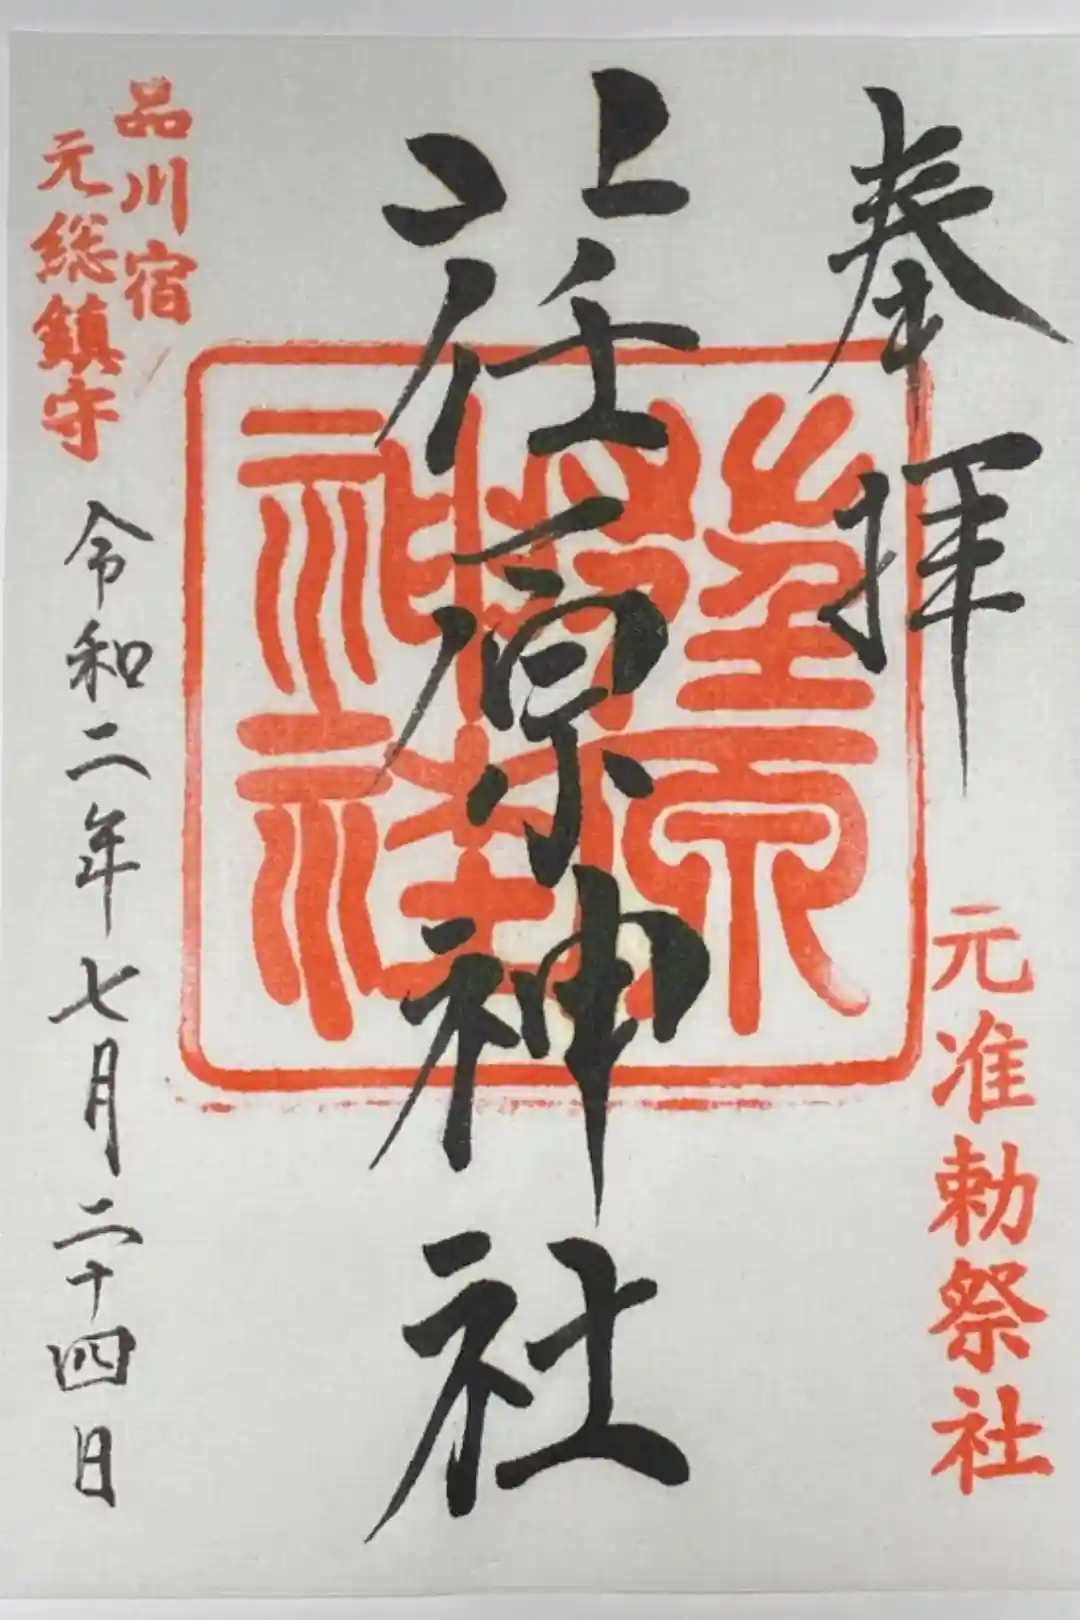 奉拝
元准勅祭社
荏原神社
荏原神社
品川宿
元総鎮守
令和二年七月二十四日